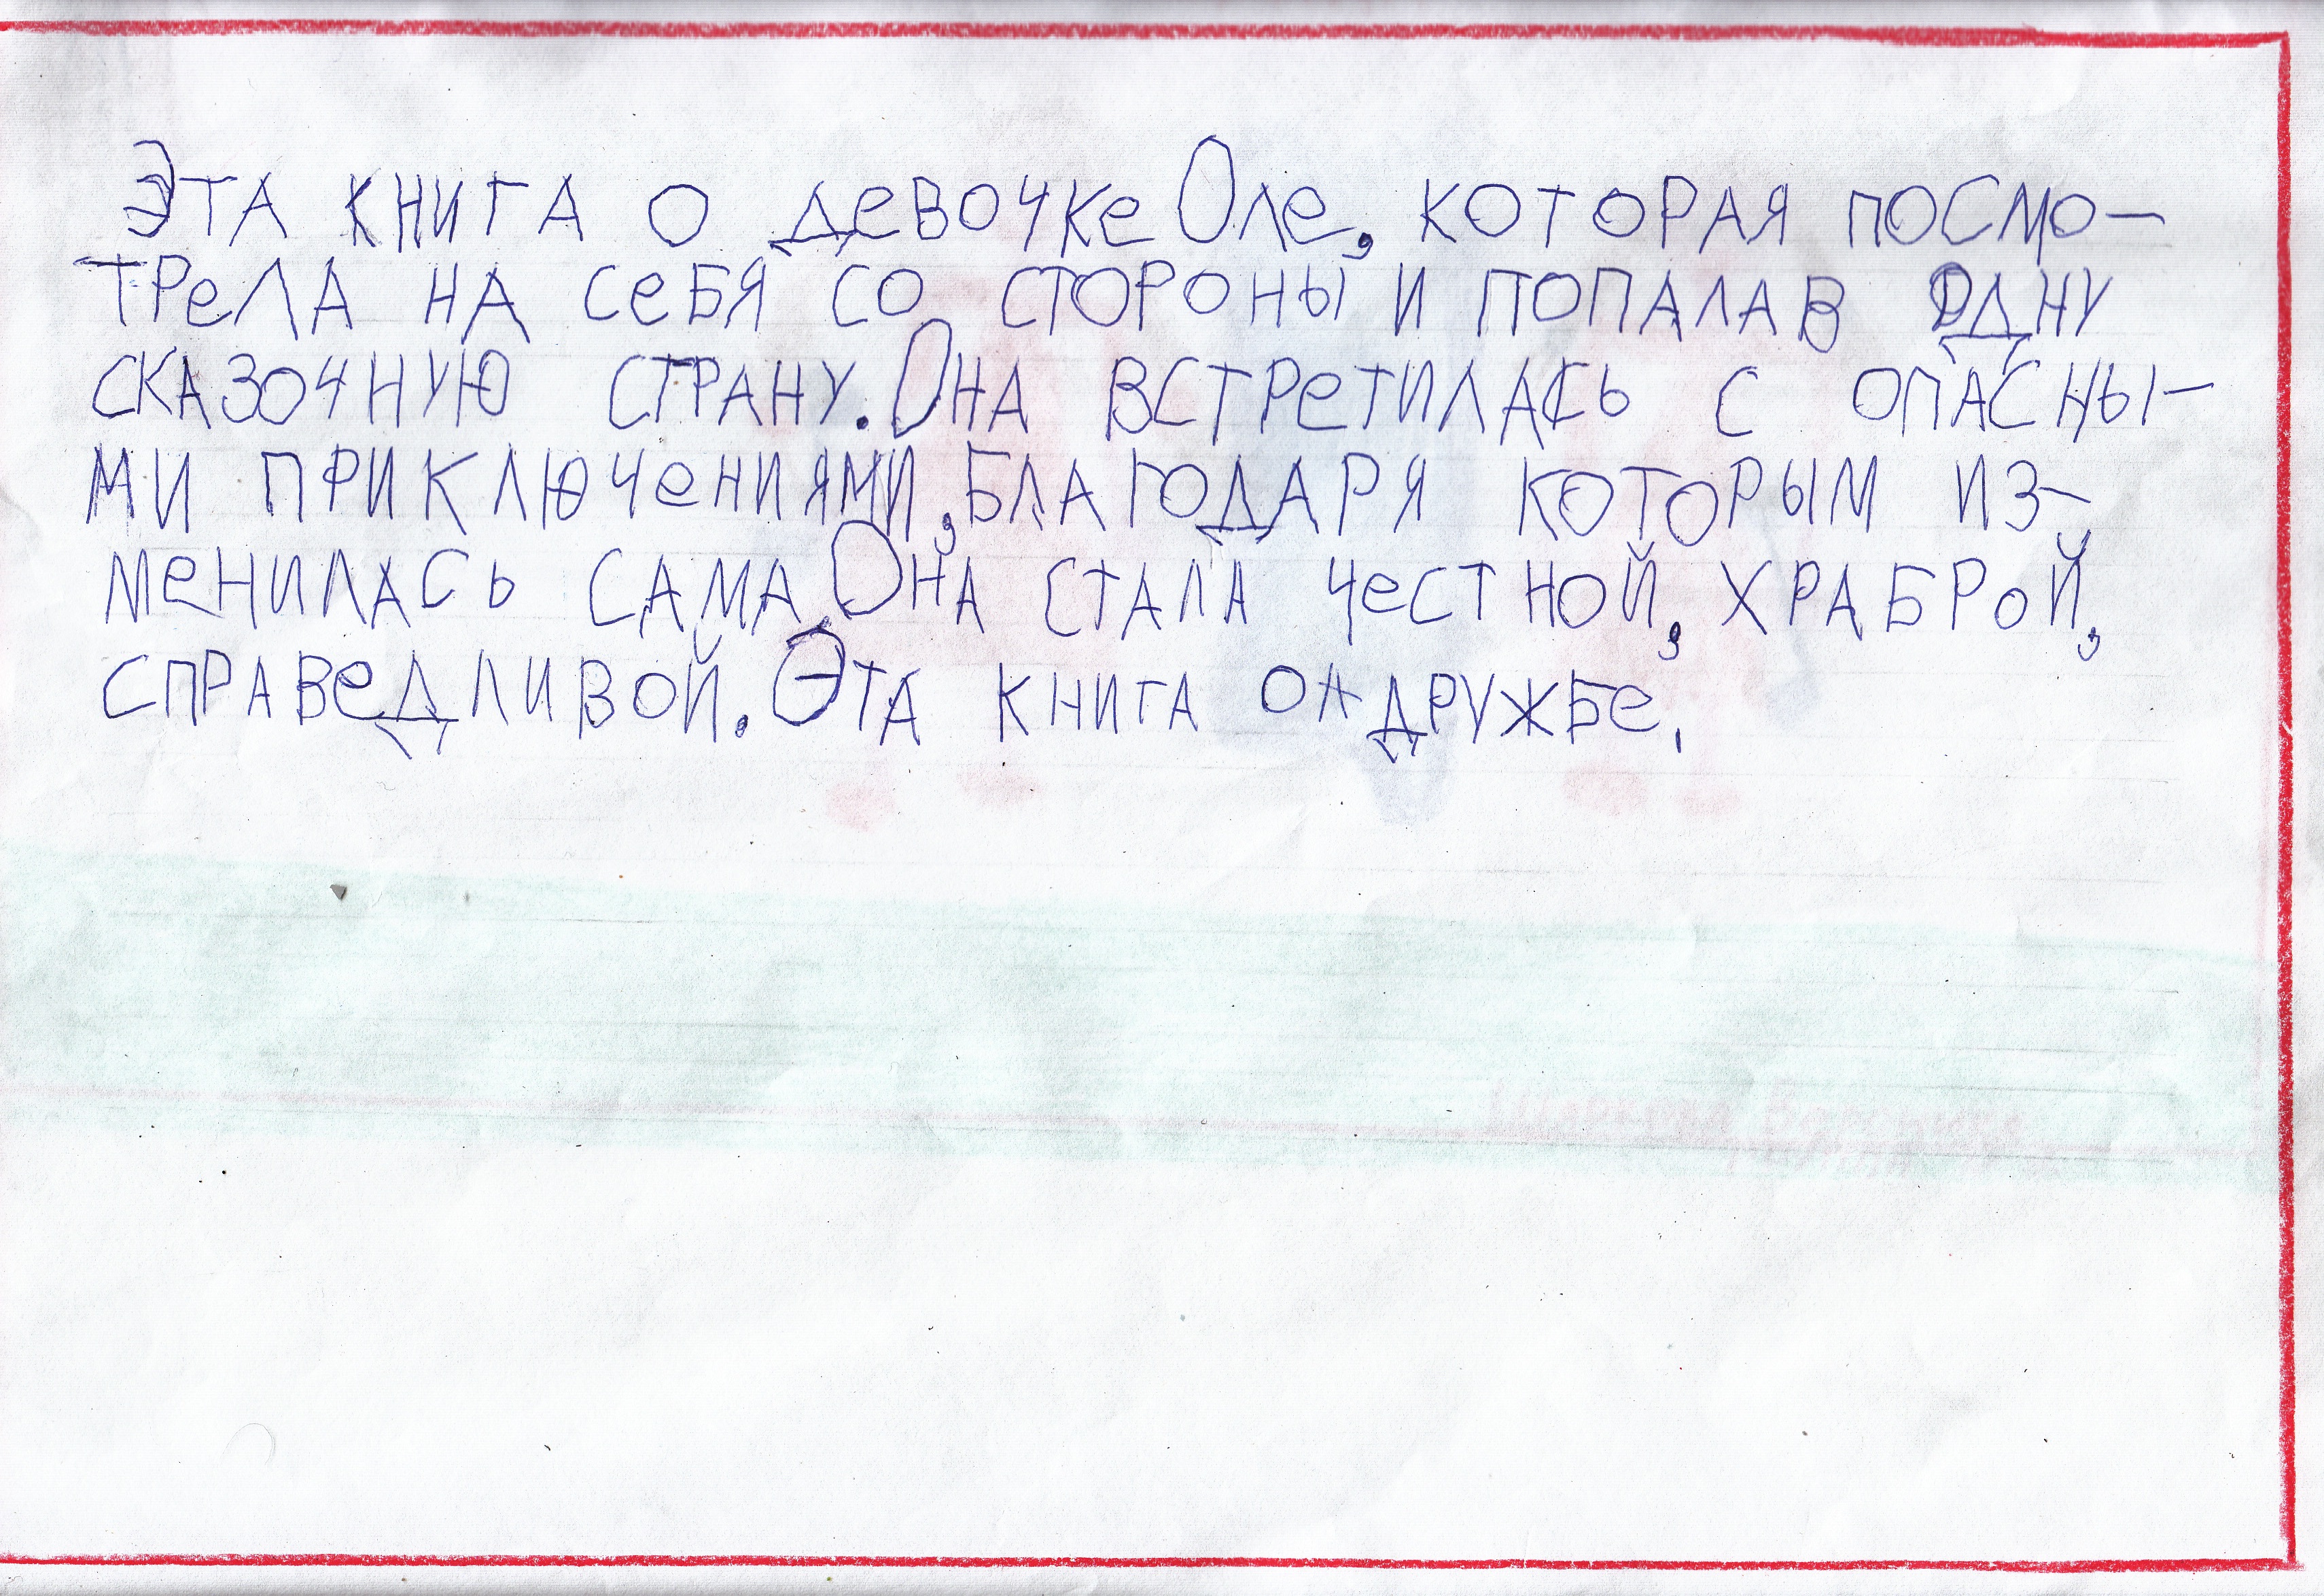 Эта книга о девочке Оле, которая посмо-
трела на себя со стороны и попала в одну
сказочную страну. Она встретилась с опасны-
ми приключениями, благодаря которым из-
менилась сама. Она стала честной, храброй,
справедливой. Эта книга о дружбе.